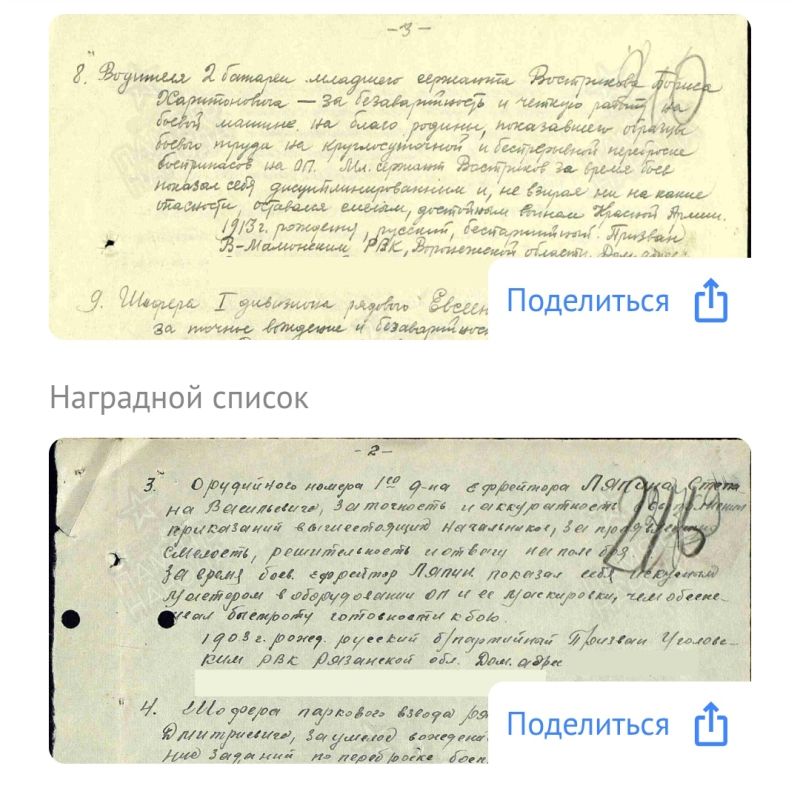 -3-
8. Водителя 2 батареи младшего сержанта Вострикова Бориса
Харитоновича — за безаварийность и четкую работу на
боевой машине на благо родины, показавшего образцы
боевого труда на круглосуточной и бесперебойной переброске
боеприпасов на ОП. Мл. сержант Востриков за время боев
показал себя дисциплинированным и, не взирая ни на какие
опасности оставался смелым, достойным воином Красной Армии.
1913 г. рождения, русский, беспартийный. Призван
В-Мамонским РВК, Воронежской области. Дом. адрес
9. Шофера I дивизиона рядового Евсеен
за точное вождение и безаварийнос
Поделиться
Наградной список
-2-
3. Орудийного номера 1го д-на ефрейтора Ляпина Степа
на Васильевича, за точность и аккуратность
приказаний вышестоящих начальников, за
смелость, решительность и отвагу на поле боя.
За время боев ефрейтор Ляпин показал себя искусным
мастером в оборудовании ОП и ее маскировки, чем обеспе-
чивал быстроту готовности к бою.
1903 г. рожд. русский б/партийный Призван Уголов-
ким РВК Рязанской обл. Дом. адрес
4. Шофера паркового взвода ря
Дмитриевича, за умелое вождени
ние заданий по переброске боеп
Поделиться